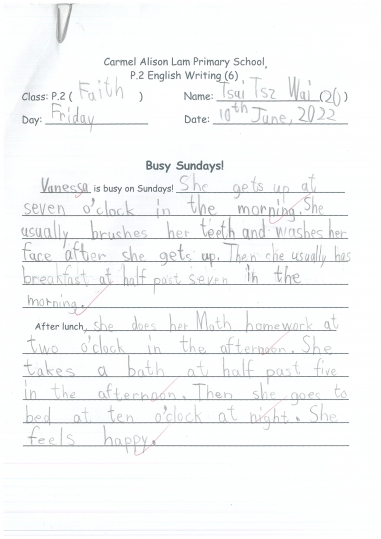 Carmel Alison Lam Primary School
P.2 English Writing (6)
Class: P.2 ( Faith ) Name: Tsui Tsz Wai (20)
Day: Friday Date: 10th June, 2022
Busy Sundays!
Vanessa is busy on Sundays! She gets up at
seven o'clock in the morning. She
usually brushes her teeth and washes her
face after she gets up. Then she usually has
breakfast at half past seven in the
morning.
After lunch, she does her Math homework at
two o'clock in the afternoon. She
takes a bath at half past five
in the afternoon. Then she goes to
bed at ten o'clock at night. She
feels happy.